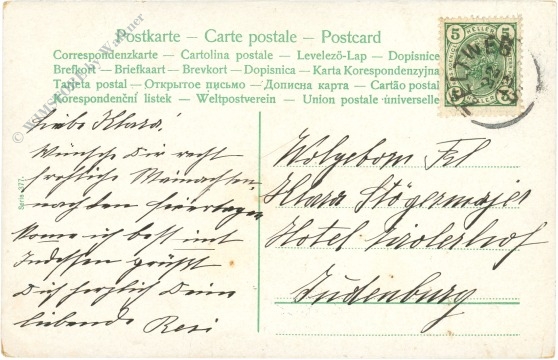 Postkarte — Carte postale — Postcard
Correspondenzkarte — Cartolina postale — Levelező-Lap — Dopisnice
Brefkort — Briefkaart — Brevkort — Dopisnica — Karta Korespondenzyjna
Tarjeta postal — Открытое письмо — Дописна карта — Cartão postal
Korespondenční listek — Weltpostverein — Union postale universelle
5 HELLER 5
Liebe Klara!
Wünsche Dir recht
fröhliche Weinachten
nach den Feiertagen
komme ich
Indessen grüsst
Dich herzlich Deine
liebende Resi
Wolgeborn Frl
Klara Stögermajer
Hotel Tirolerhof
Judenburg
Serie 377.